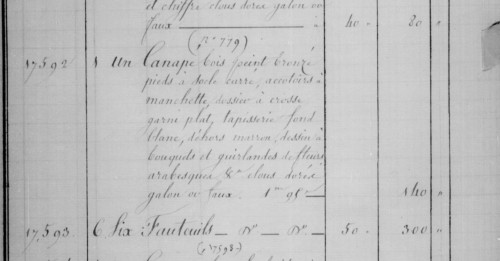 et chiffre clous dorés galon or
faux — 40 " 20 "
(Bn 779)
17,592 1 Un Canapé bois peint bronzé
pieds à socle carré, accotoirs à
manchette, dossier à crosse
garni plat, tapisserie fond
blanc, dehors marron, dessin à
bouquets et guirlandes de fleurs
arabesques &a clous dorés
galon or faux. 1m95 — 140 "
17,593 6 Six Fauteuils — do — do — 50 " 300 "